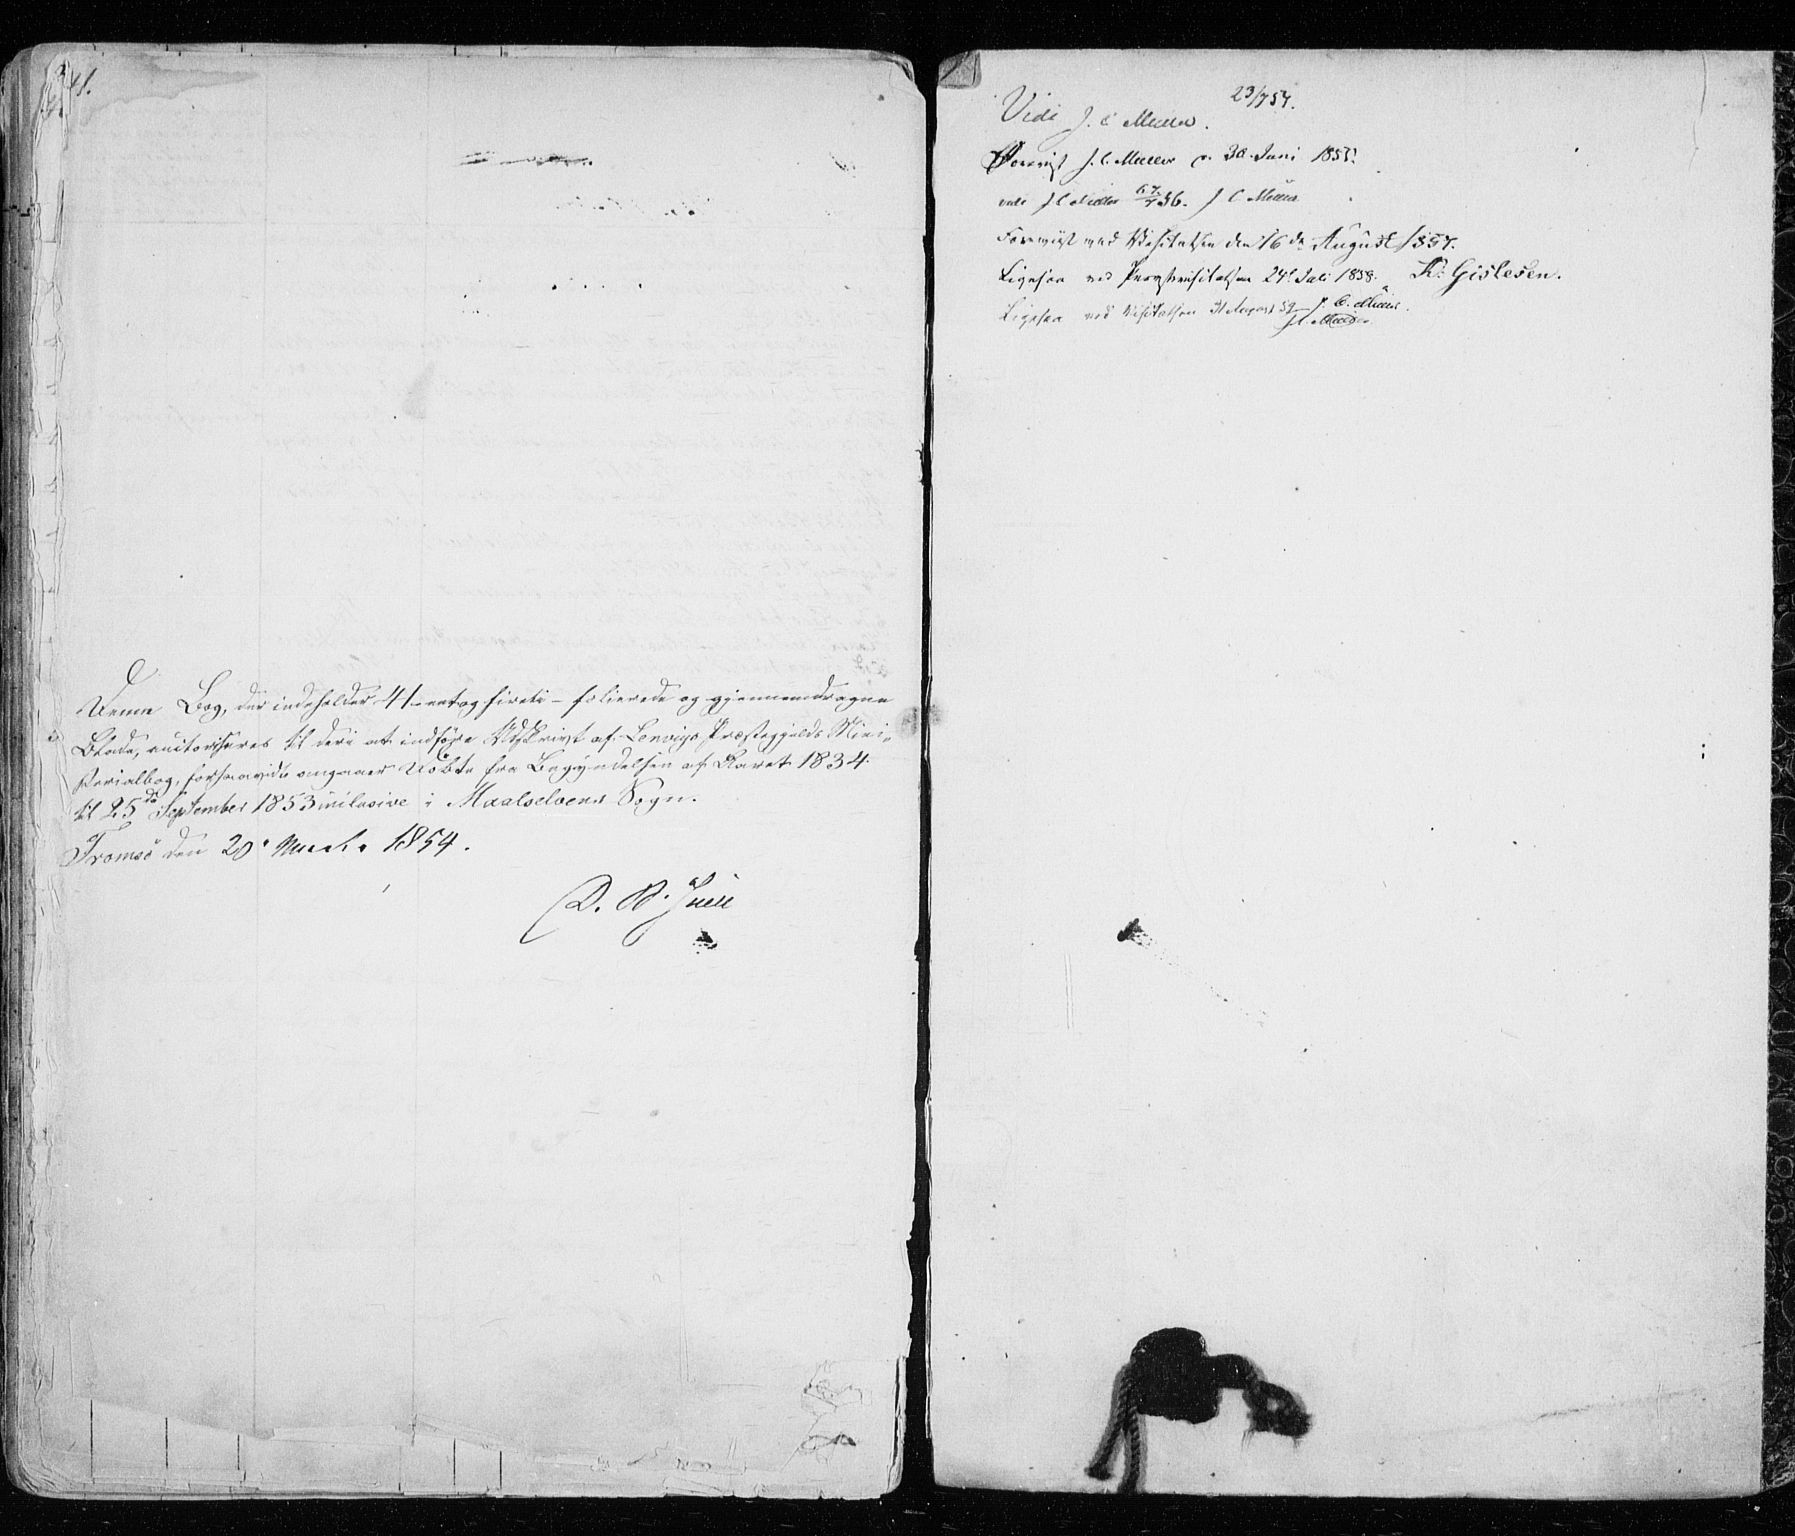 41.
Denne Bog, der indeholder 41 - een og fireti - folierede og gjennemdragne
Blade, autoriseres til deri at indføre Udskrivt af Lenvigs Præstegjelds Mini-
sterialbog, forsaavidt angaaer Döbte fra Begyndelsen af Aaret 1834
til 25de September 1853 inclusive i Maalselvens Sogn.
Tromsö den 20 Marts 1854.
D. B. Juell
23/7 54.
Vidi J. C. Müller.
Forevist J. C. Müller d. 30 Juni 1855.
vidi J C Müller 56. J C Müller
Forevist ved Visitatsen den 16de August 1857.
K: Gislesen.
Ligesaa ved Provstevisitatsen 24 Juli 1858.
J. C. Müller.
Ligesaa ved Visitatsen 31 August 59
J C. Müller